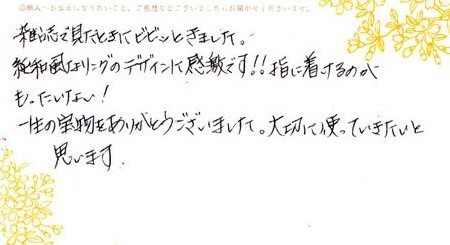 ◎職人へお伝えになりたいこと、ご感想などございましたらお聞かせくださいませ。
雑誌で見たときにビビッときました。
純和風なリングのデザインに感激です!!指に着けるのが
もったいない!
一生の宝物をありがとうございました。大切に使っていきたいと
思います.